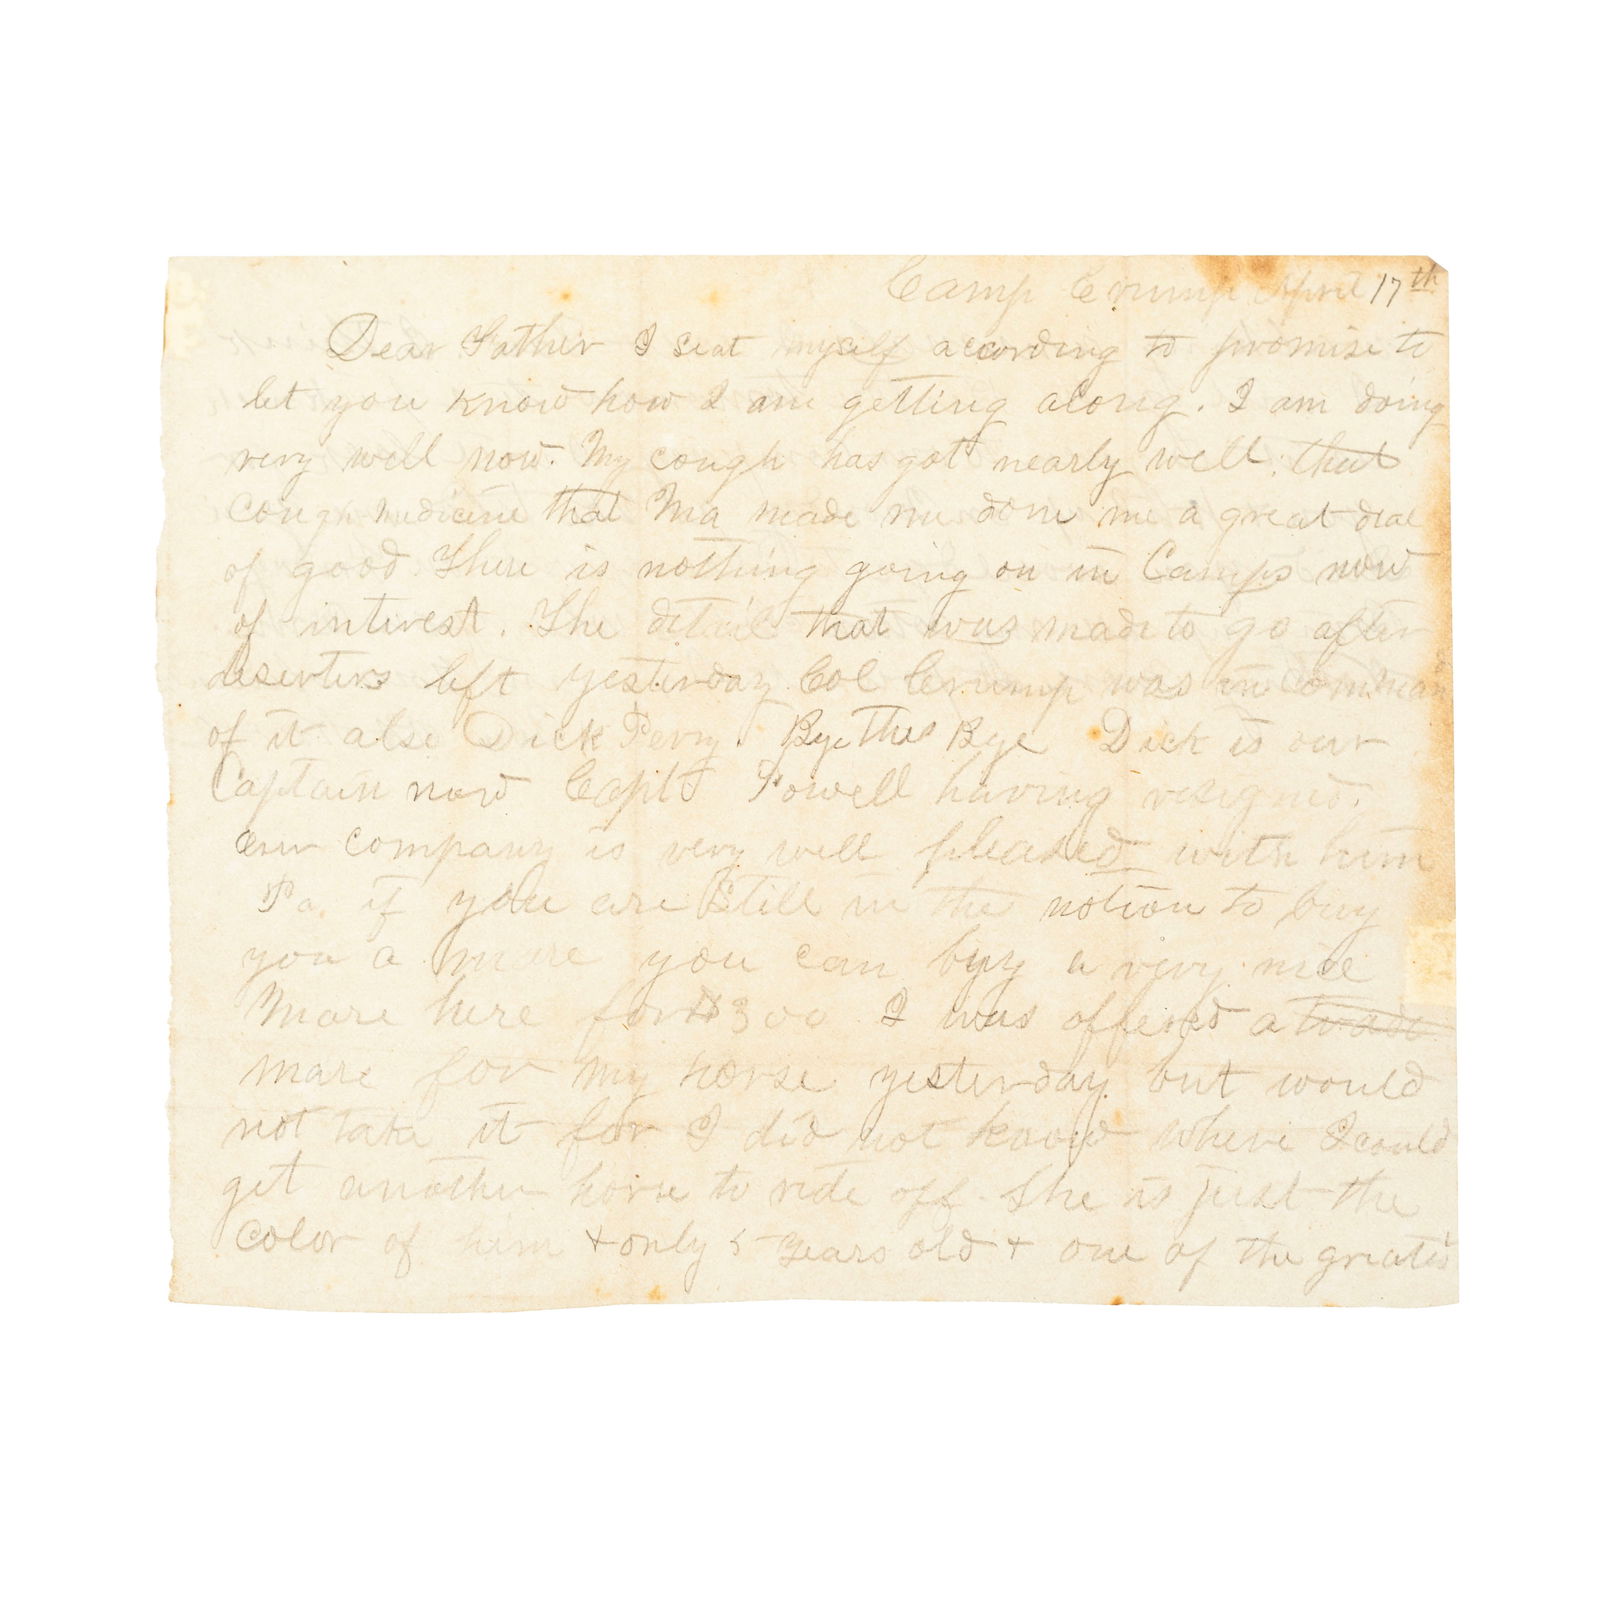 Camp Crump April 17th
Dear Father I seat myself according to promise to
let you know how I am getting along. I am doing
very well now. My cough has got nearly well. that
cough medicine that Ma made me done me a great deal
of good. There is nothing going on in Camps now
of interest. The detail that was made to go after
deserters left yesterday Col Crump was in comman
of it also Dick Perry. Bye the Bye Dick is our
Captain now Capt Powell having resigned.
our company is very well pleased with him
Pa. if you are still in the notion to buy
you a mare you can buy a very nice
Mare here for $300 I was offered a trade
mare for my horse yesterday but would
not take it for I did not know where I could
get another horse to ride off. She is just the
color of him + only 5 years old + one of the greatest